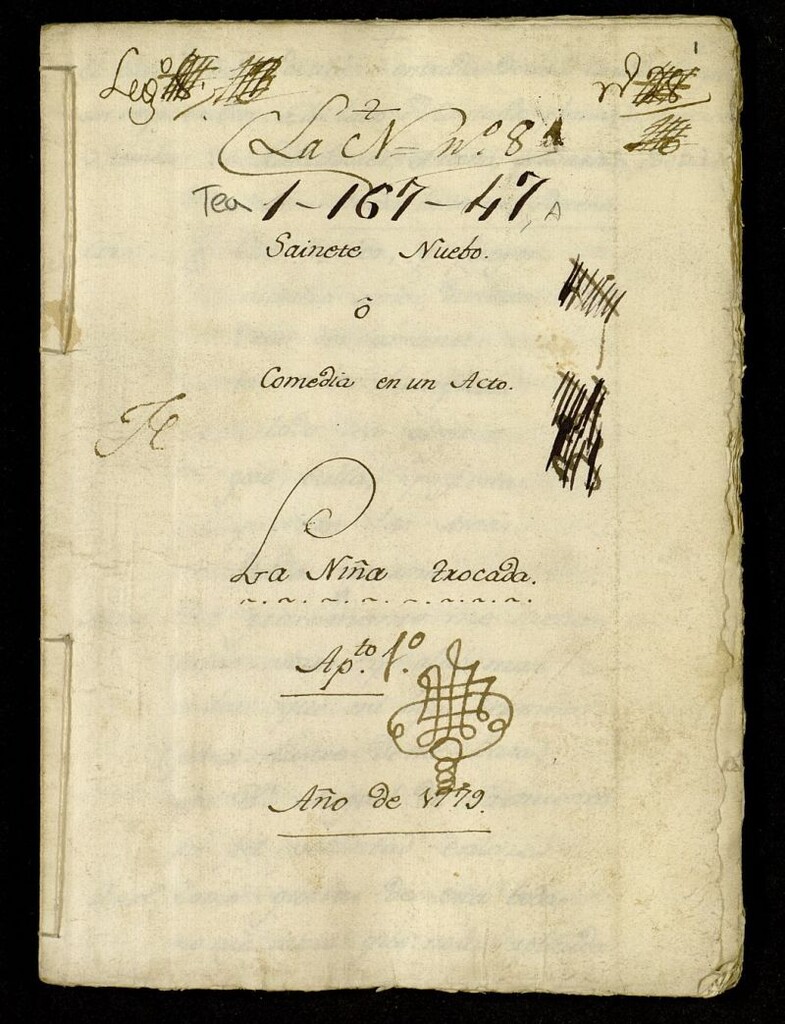 Leg.º
1
La N nº 8
Tea 1-167-47, A
Sainete Nuebo.
ô
Comedia en un Acto.
La Niña trocada.
Ap.to 1.º
Año de 1779.